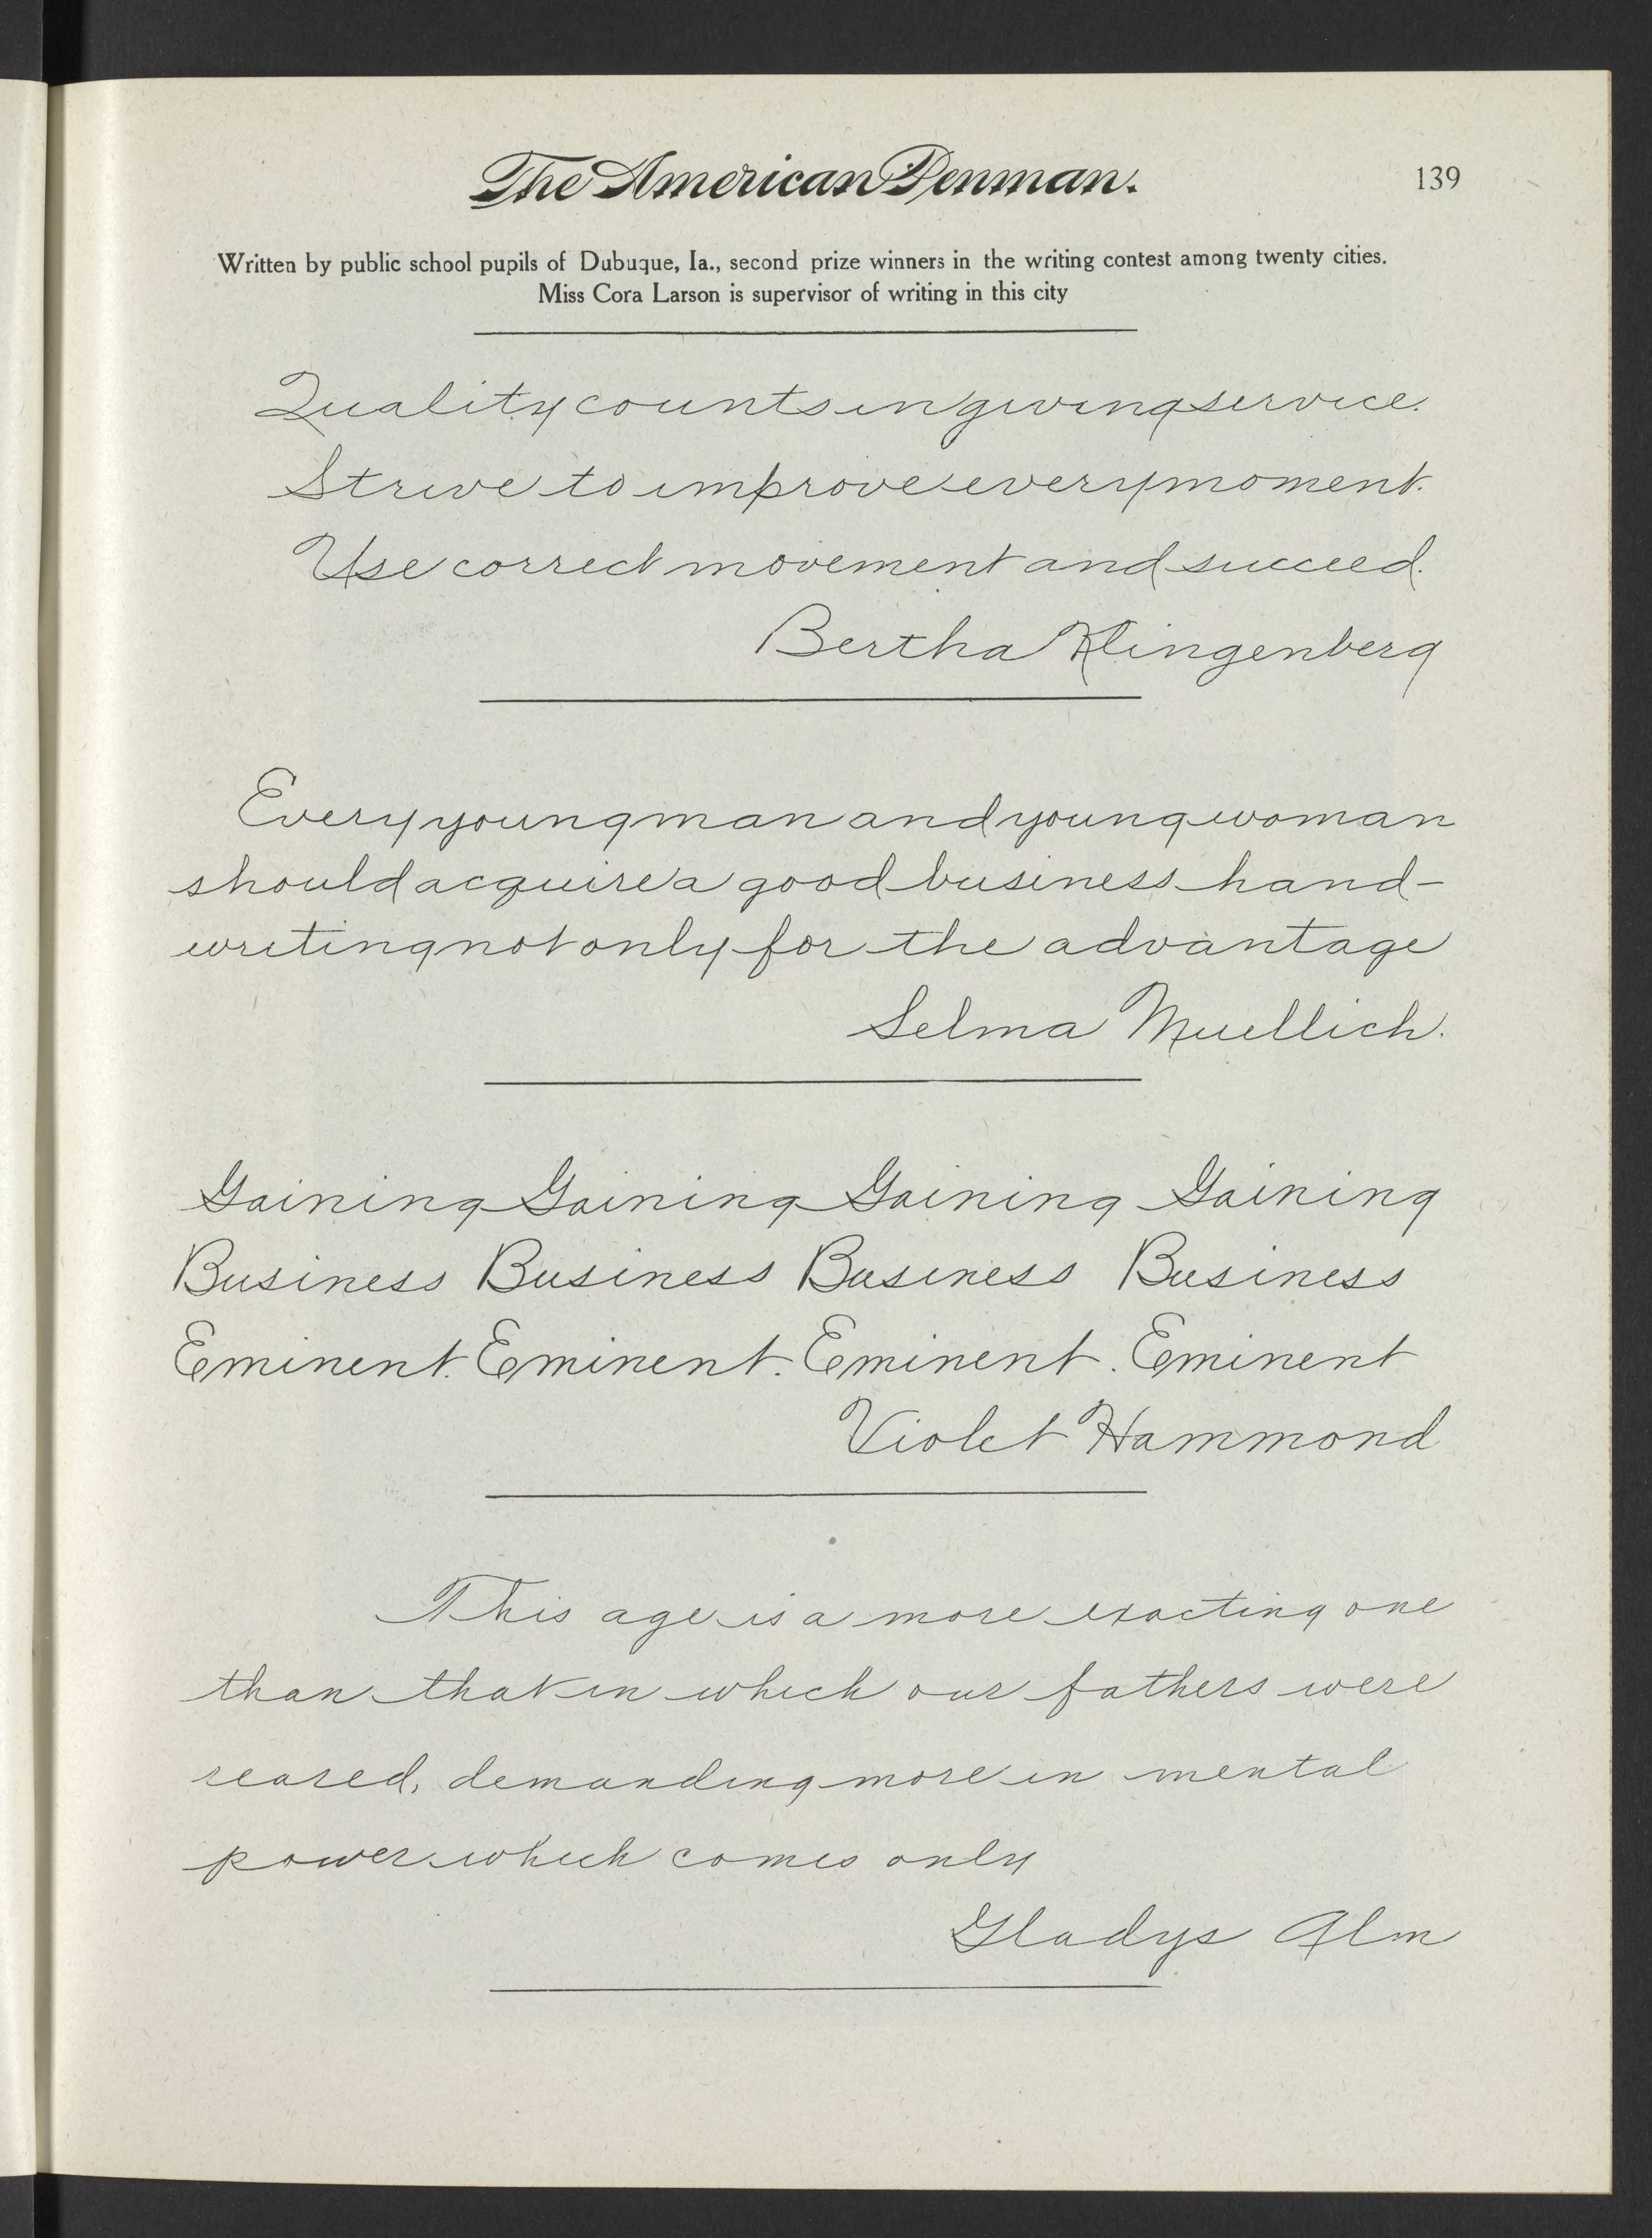 The American Penman.
139
Written by public school pupils of Dubuque, Ia., second prize winners in the writing contest among twenty cities.
Miss Cora Larson is supervisor of writing in this city
Quality counts in giving service.
Strive to improve every moment.
Use correct movement and succeed.
Bertha Klingenberg
Every young man and young woman
should acquire a good business hand-
writing not only for the advantage
Selma Muellich.
Gaining Gaining Gaining Gaining
Business Business Business Business
Eminent. Eminent. Eminent. Eminent
Violet Hammond
This age is a more exacting one
than that in which our fathers were
reared, demanding more in mental
power which comes only
Gladys Alm